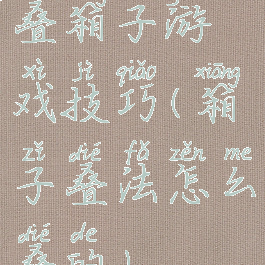 叠箱子游
xì jì qiǎo xiāng
戏技巧(箱
zǐ dié fǎ zěn me
子叠法怎么
dié de
叠的)